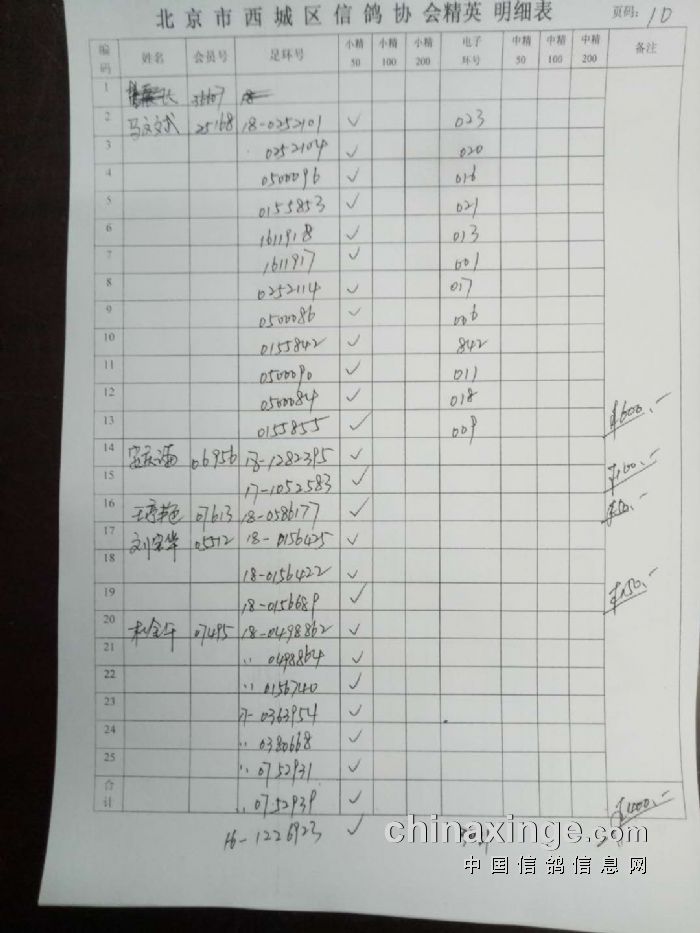 北京市西城区信鸽协会精英 明细表 页码: 10
编码 姓名 会员号 足环号 小精50 小精100 小精200 电子环号 中精50 中精100 中精200 备注
1
2 25168 18-0252101 ✓ 023
3 0252104 ✓ 020
4 0500096 ✓ 016
5 0155853 ✓ 021
6 1611918 ✓ 013
7 1611917 ✓ 001
8 0252114 ✓ 017
9 0500086 ✓ 006
10 0155842 ✓ 842
11 0500090 ✓ 011
12 0500084 ✓ 018
13 0155855 ✓ 009 ¥600.-
14 06956 18-1282395 ✓
15 17-1052583 ✓ ¥100.-
16 07613 18-0586177 ✓ ¥50.-
17 刘宝华 05512 18-0156425 ✓
18 18-0156422 ✓
19 18-0156689 ✓ ¥150.-
20 07495 18-0498862 ✓
21 '' 0498864 ✓
22 '' 0156740 ✓
23 17-0363954 ✓
24 '' 0380668 ✓
25 '' 0752931 ✓
合计 '' 0752939 ✓
16-1226923 ✓
chinaxinge.com
中国信鸽信息网